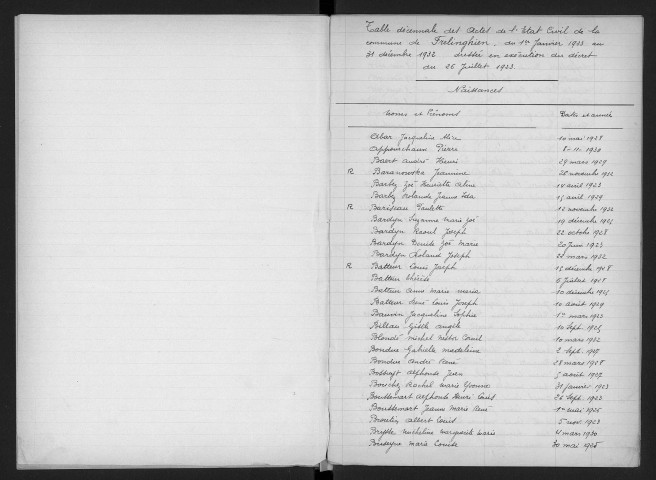 Table décennale des Actes de l'Etat Civil de la
commune de Frelinghien, du 1er Janvier 1923 au
31 décembre 1932 dressée en exécution du décret
du 26 Juillet 1923.
Naissances
Noms et Prénoms Dates et année
Abar Jacqueline Alice 10 mai 1928
Pierre 8-11-1930
Baert André Henri 29 mars 1929
R Baranowska Jeannine 28 novembre 1932
Barbez Zoé Henriette 18 avril 1923
Barbez Rolande Jeanne 15 avril 1929
R Paulette 12 novembre 1932
Bardyn Suzanne Marie Zoé 19 décembre 1925
Bardyn Raoul Joseph 22 octobre 1928
Bardyn Denise Zoé Marie 20 Juin 1923
Bardyn Roland Joseph 22 mars 1932
R Batteur Louis Joseph 15 décembre 1928
Batteur Thérèse 6 Juillet
Batteur Marie 10 décembre 1925
Batteur René Louis Joseph 10 août 1929
Bauvin Jacqueline Sophie 1er mars 1923
Billau Gisèle Angèle 10 Sept. 1925
Blondé Michel Nestor Cornil 10 mars 1932
Bondue Gabrielle Madeleine 2 Sept. 1927
Bondue André René 28 mars 1928
Alphonse 5 août 1927
Rachel Marie Yvonne 31 Janvier 1923
Boussemart Alphonse Henri Louis 26 Sept. 1923
Boussemart Jeanne Marie René 1er mai 1926
Albert Louis 5 nov. 1923
Micheline Marguerite Marie 4 mars 1930
Marie Louise 30 mai